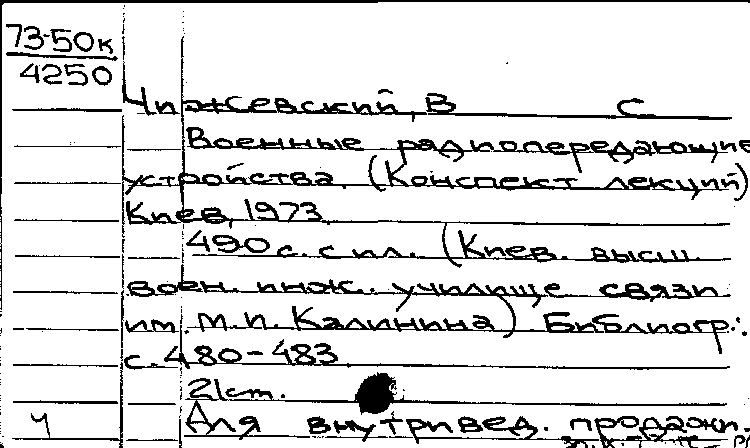 73-50к
4250
Чижевский, В С
Военные радиопередающие
устройства. (Конспект лекций)
Киев, 1973.
490 с. с ил. (Киев. высш.
воен. инж. училище связи
им. М.И. Калинина). Библиогр.:
с. 480-483
21см.
Ч Для внутривед. продажи.